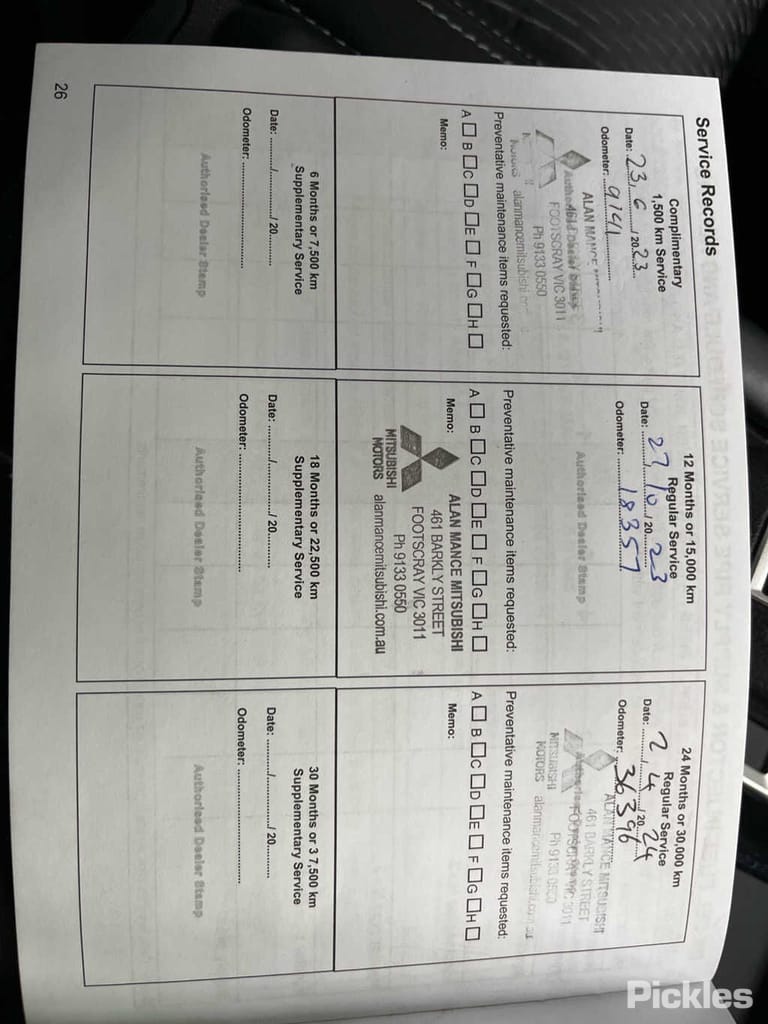 Service Records
Complimentary
1,500 km Service
Date: 23/6/2023
Odometer: 9141
ALAN MANCE
Authorised Dealer Stamp
FOOTSCRAY VIC 3011
Ph 9133 0550
MOTORS alanmancemitsubishi.com
Preventative maintenance items requested:
A B C D E F G H
Memo:
6 Months or 7,500 km
Supplementary Service
Date: ........./........./ 20.........
Odometer: ..............................
Authorised Dealer Stamp
12 Months or 15,000 km
Regular Service
Date: 27/10/2023
Odometer: 18357
Authorised Dealer Stamp
Preventative maintenance items requested:
A B C D E F G H
Memo:
ALAN MANCE MITSUBISHI
461 BARKLY STREET
FOOTSCRAY VIC 3011
Ph 9133 0550
MITSUBISHI
MOTORS alanmancemitsubishi.com.au
18 Months or 22,500 km
Supplementary Service
Date: ........./........./ 20.........
Odometer: ..............................
Authorised Dealer Stamp
24 Months or 30,000 km
Regular Service
Date: 2/4/2024
Odometer: 36396
ALAN MANCE MITSUBISHI
461 BARKLY STREET
Authorised Dealer Stamp
FOOTSCRAY VIC 3011
MITSUBISHI Ph 9133 0550
MOTORS alanmancemitsubishi.com.au
Preventative maintenance items requested:
A B C D E F G H
Memo:
30 Months or 3 7,500 km
Supplementary Service
Date: ........./........./ 20.........
Odometer: ..............................
Authorised Dealer Stamp
26
Pickles